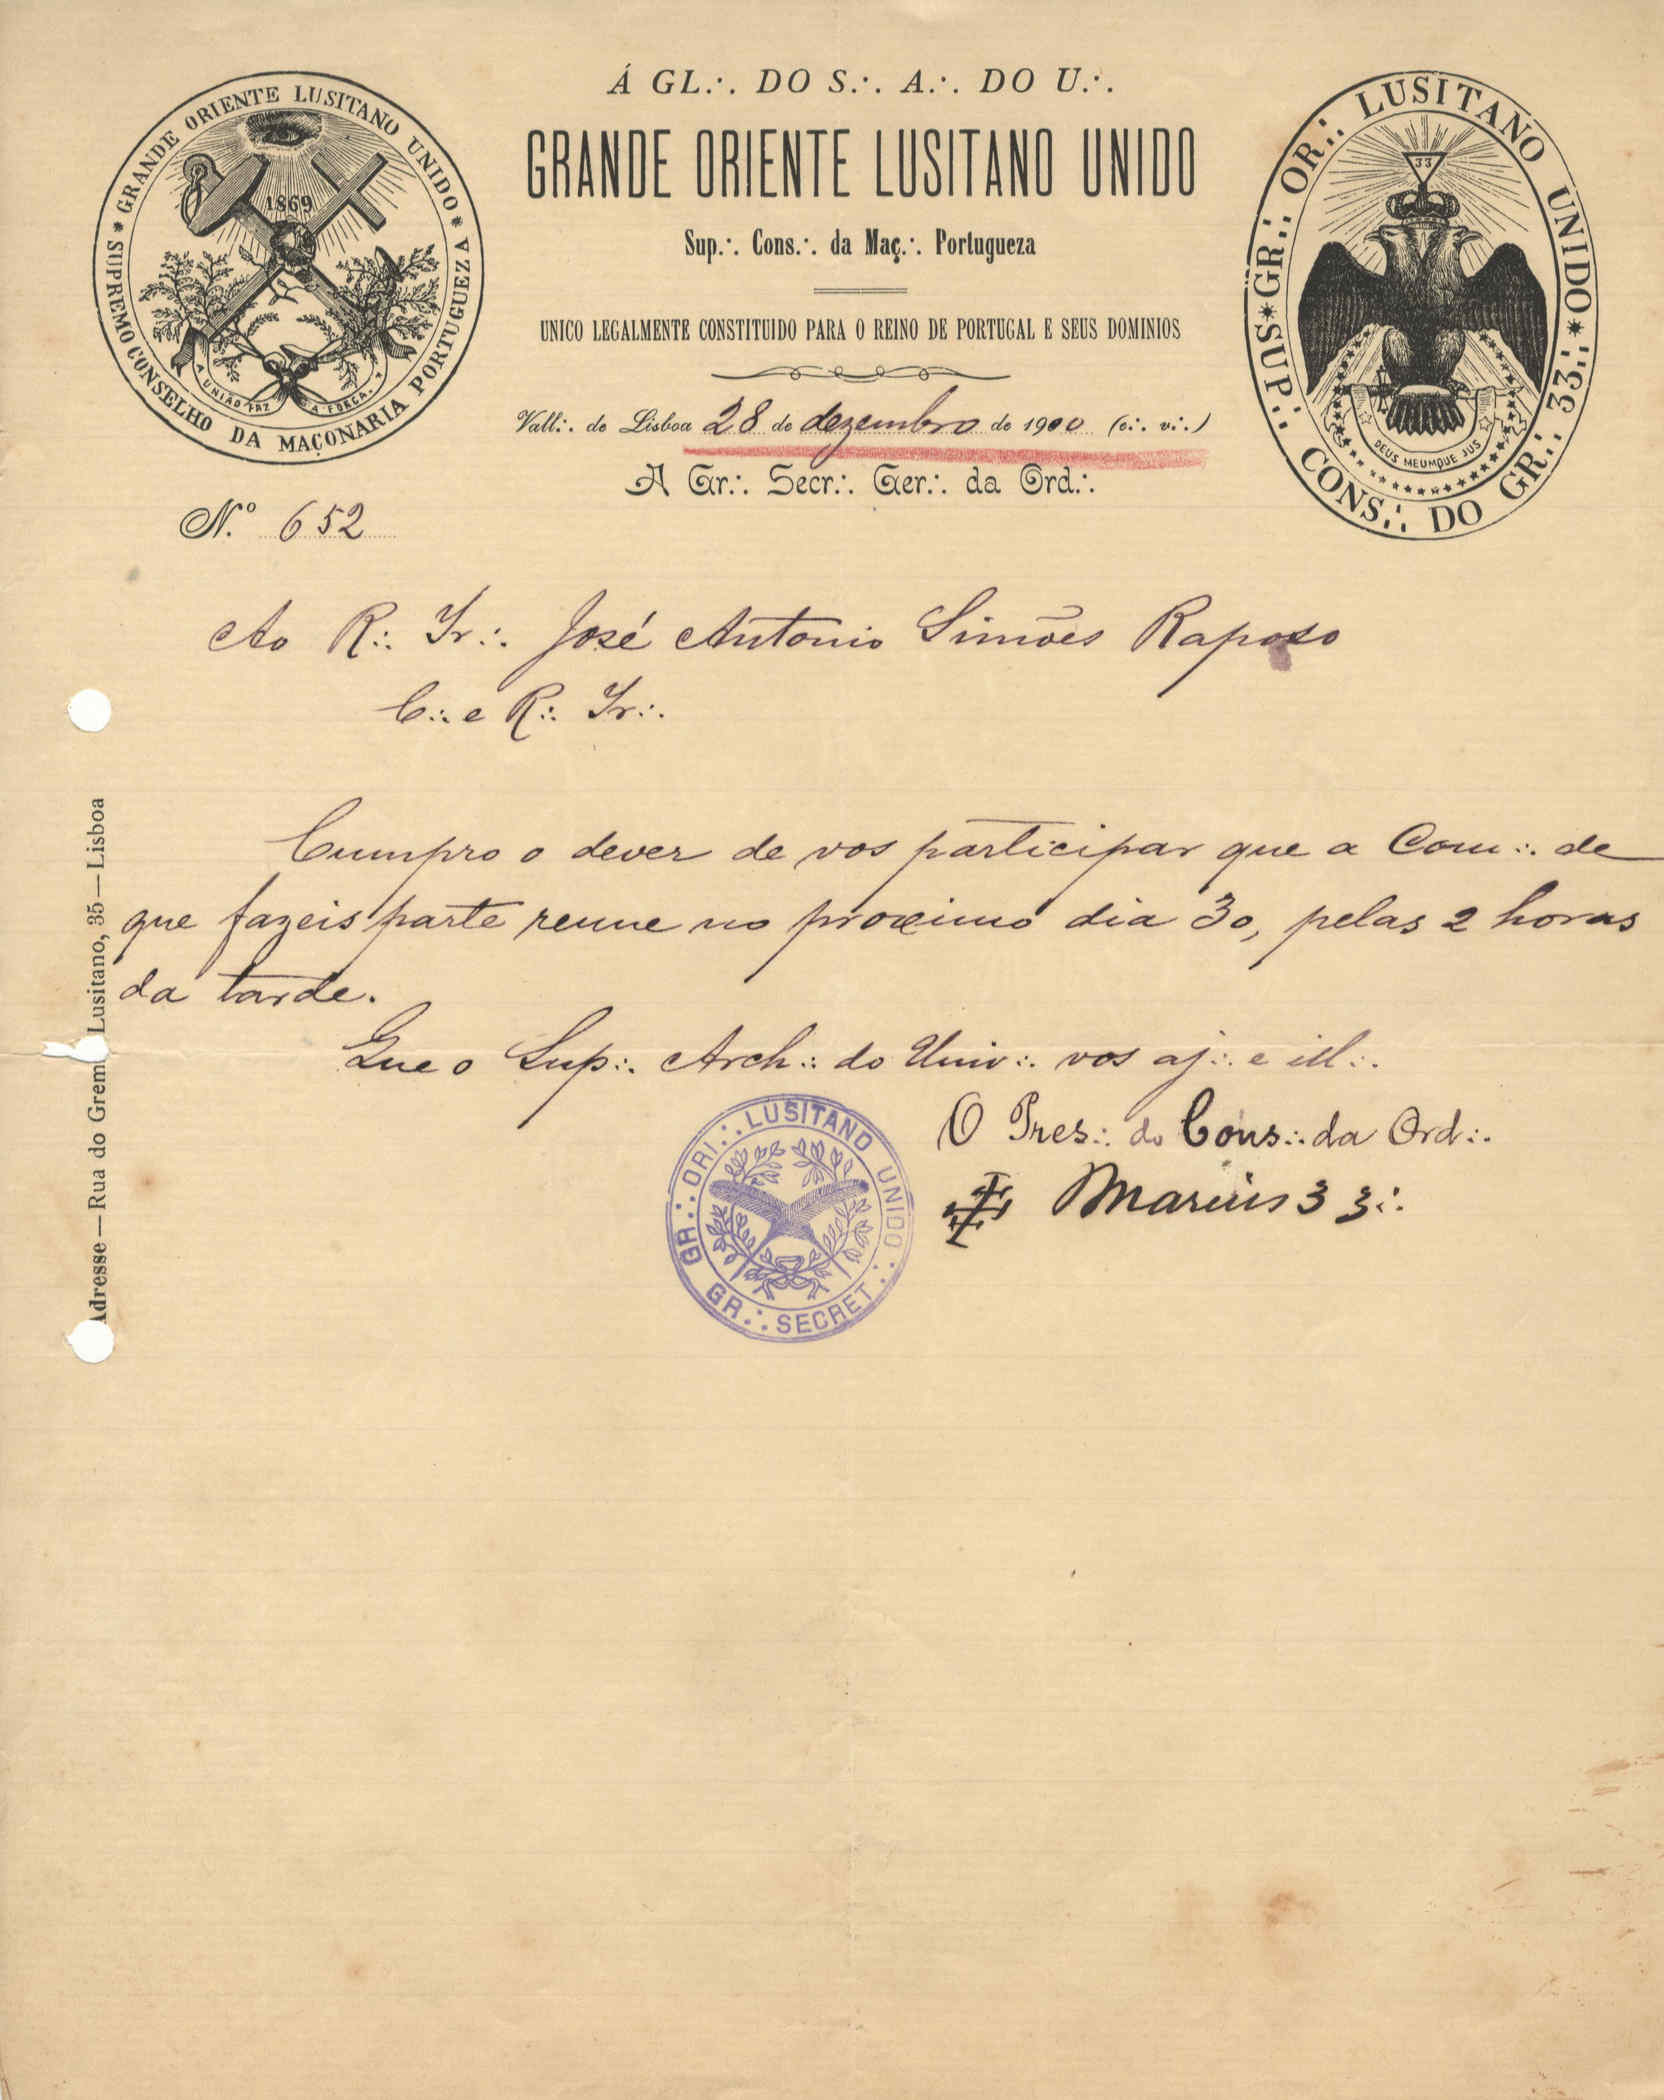 Á GL.·. DO S.·. A.·. DO U.·.
GRANDE ORIENTE LUSITANO UNIDO
Sup.·. Cons.·. da Maç.·. Portugueza
UNICO LEGALMENTE CONSTITUIDO PARA O REINO DE PORTUGAL E SEUS DOMINIOS
Vall.·. de Lisboa 28 de dezembro de 1900 (e.·. v.·.)
A Gr.·. Secr.·. Ger.·. da Ord.·.
* GRANDE ORIENTE LUSITANO UNIDO *
SUPREMO CONSELHO DA MAÇONARIA PORTUGUEZA
1869
A UNIÃO FAZ A FORÇA
GR.·. OR.·. LUSITANO UNIDO *
SUP.·. CONS.·. DO GR.·. 33.·. *
33
DEUS MEUMQUE JUS
N.º 652
Ao R.·. Ir.·. José Antonio Simões Raposo
C.·. e R.·. Ir.·.
Cumpro o dever de vos participar que a Com.·. de
que fazeis parte reune no proximo dia 30, pelas 2 horas
da tarde.
Que o Sup.·. Arch.·. do Univ.·. vos aj.·. e ill.·.
O Pres.·. do Cons.·. da Ord.·.
Marius 33.·.
GR.·. ORI.·. LUSITANO UNIDO.·.
GR.·. SECRET.·.
Adresse — Rua do Grem Lusitano, 35 — Lisboa